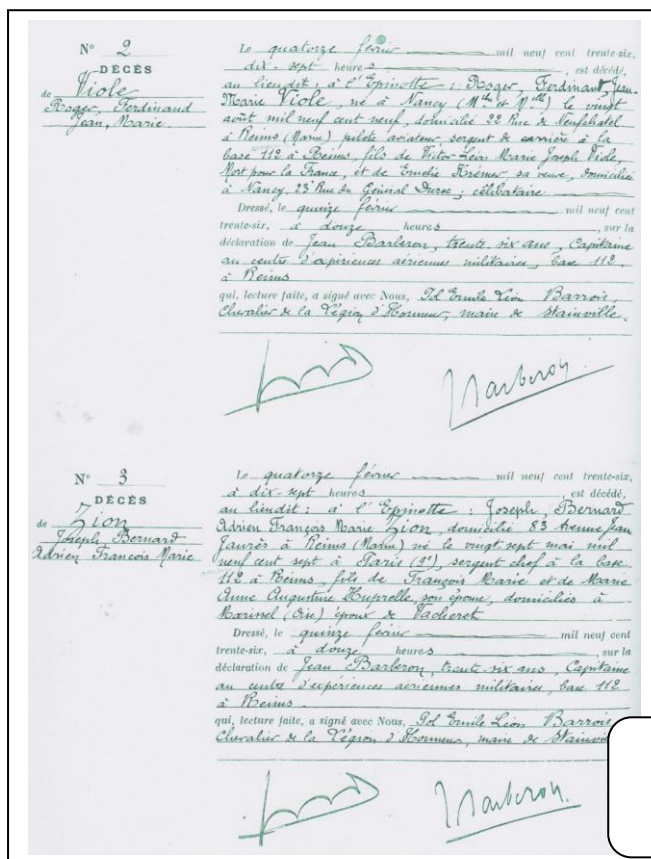 N° 2
DÉCÈS
de Viole
Roger, Ferdinand
Jean, Marie
Le quatorze février mil neuf cent trente-six,
dix-sept heures, est décédé,
au lieudit : à l'Epinotte : Roger, Ferdinant, Jean
Marie Viole, né à Nancy (Mthe et Mlle) le vingt
août mil neuf cent neuf, domicilié 22 Rue de Neufchatel
à Reims (Marne) pilote aviateur sergent de carrière à la
base 112 à Reims, fils de Victor Léon Marie Joseph Viole,
Mort pour la France, et de Emélie Krémer sa veuve, domiciliée
à Nancy, 23 Rue du Général Duroc ; célibataire
Dressé, le quinze février mil neuf cent
trente-six, à douze heures, sur la
déclaration de Jean Barberon, trente six ans, Capitaine
au centre d'expériences aériennes militaires, base 112
à Reims
qui, lecture faite, a signé avec Nous, Pol Emile Léon Barrois,
Chevalier de la Légion d'Honneur, maire de Stainville.
Barberon
N° 3
DÉCÈS
de Zion
Joseph Bernard
Adrien François Marie
Le quatorze février mil neuf cent trente-six,
à dix-sept heures, est décédé,
au lieudit : à l'Epinotte : Joseph, Bernard
Adrien François Marie Zion, domicilié 83 Avenue Jean
Jaurès à Reims (Marne) né le vingt-sept mai mil
neuf cent sept à Paris, sergent chef à la base
112 à Reims, fils de François Marie et de Marie
Anne Augustine Huprelle, son épouse, domiciliés à
(Oise) époux de Vacheret
Dressé, le quinze février mil neuf cent
trente-six, à douze heures, sur la
déclaration de Jean Barberon, trente-six ans, Capitaine
au centre d'expériences aériennes militaires, base 112
à Reims
qui, lecture faite, a signé avec Nous, Pol Emile Léon Barrois
Chevalier de la Légion d'Honneur, maire de
Barberon